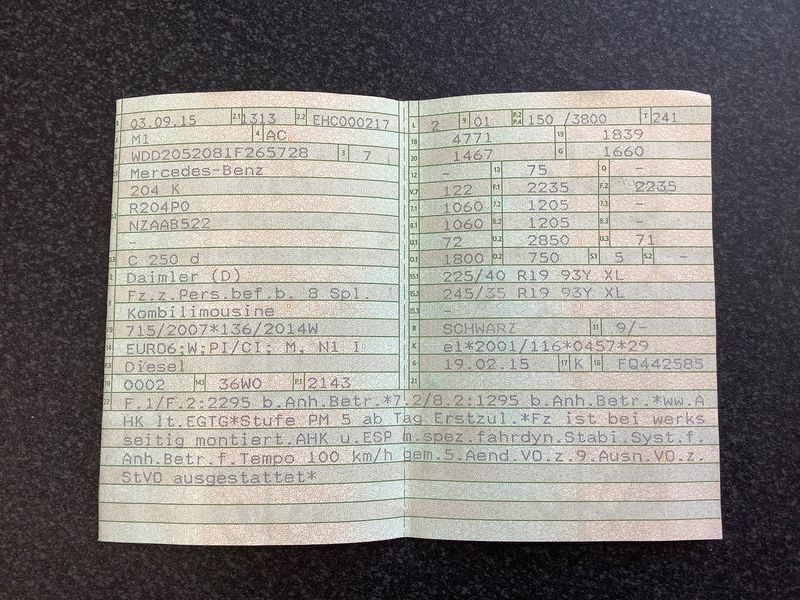 03.09.15 2.1 1313 2.2 EHC000217
M1 4 AC
WDD2052081F265728 3 7
Mercedes-Benz
204 K
R204P0
NZAAB522
-
C 250 d
Daimler (D)
Fz.z.Pers.bef.b. 8 Spl.
Kombilimousine
715/2007*136/2014W
EURO6;W;PI/CI; M, N1 I
Diesel
0002 14.1 36W0 P.1 2143
L 2 9 01 P.2 P.4 150 /3800 T 241
18 4771 19 1839
20 1467 G 1660
12 - 13 75 Q -
V.7 122 F.1 2235 F.2 2235
7.1 1060 7.2 1205 7.3 -
8.1 1060 8.2 1205 8.3 -
U.1 72 U.2 2850 U.3 71
O.1 1800 O.2 750 S.1 5 S.2 -
15.1 225/40 R19 93Y XL
15.2 245/35 R19 93Y XL
15.3 -
R SCHWARZ 11 9/-
K e1*2001/116*0457*29
6 19.02.15 17 K 16 FQ442585
21
22 F.1/F.2:2295 b.Anh.Betr.*7.2/8.2:1295 b.Anh.Betr.*ww.A
HK lt.EGTG*Stufe PM 5 ab Tag Erstzul.*Fz ist bei werks
seitig montiert.AHK u.ESP m.spez.fahrdyn.Stabi.Syst.f.
Anh.Betr.f.Tempo 100 km/h gem.5.Aend.VO.z.9.Ausn.VO.z.
StVO ausgestattet*